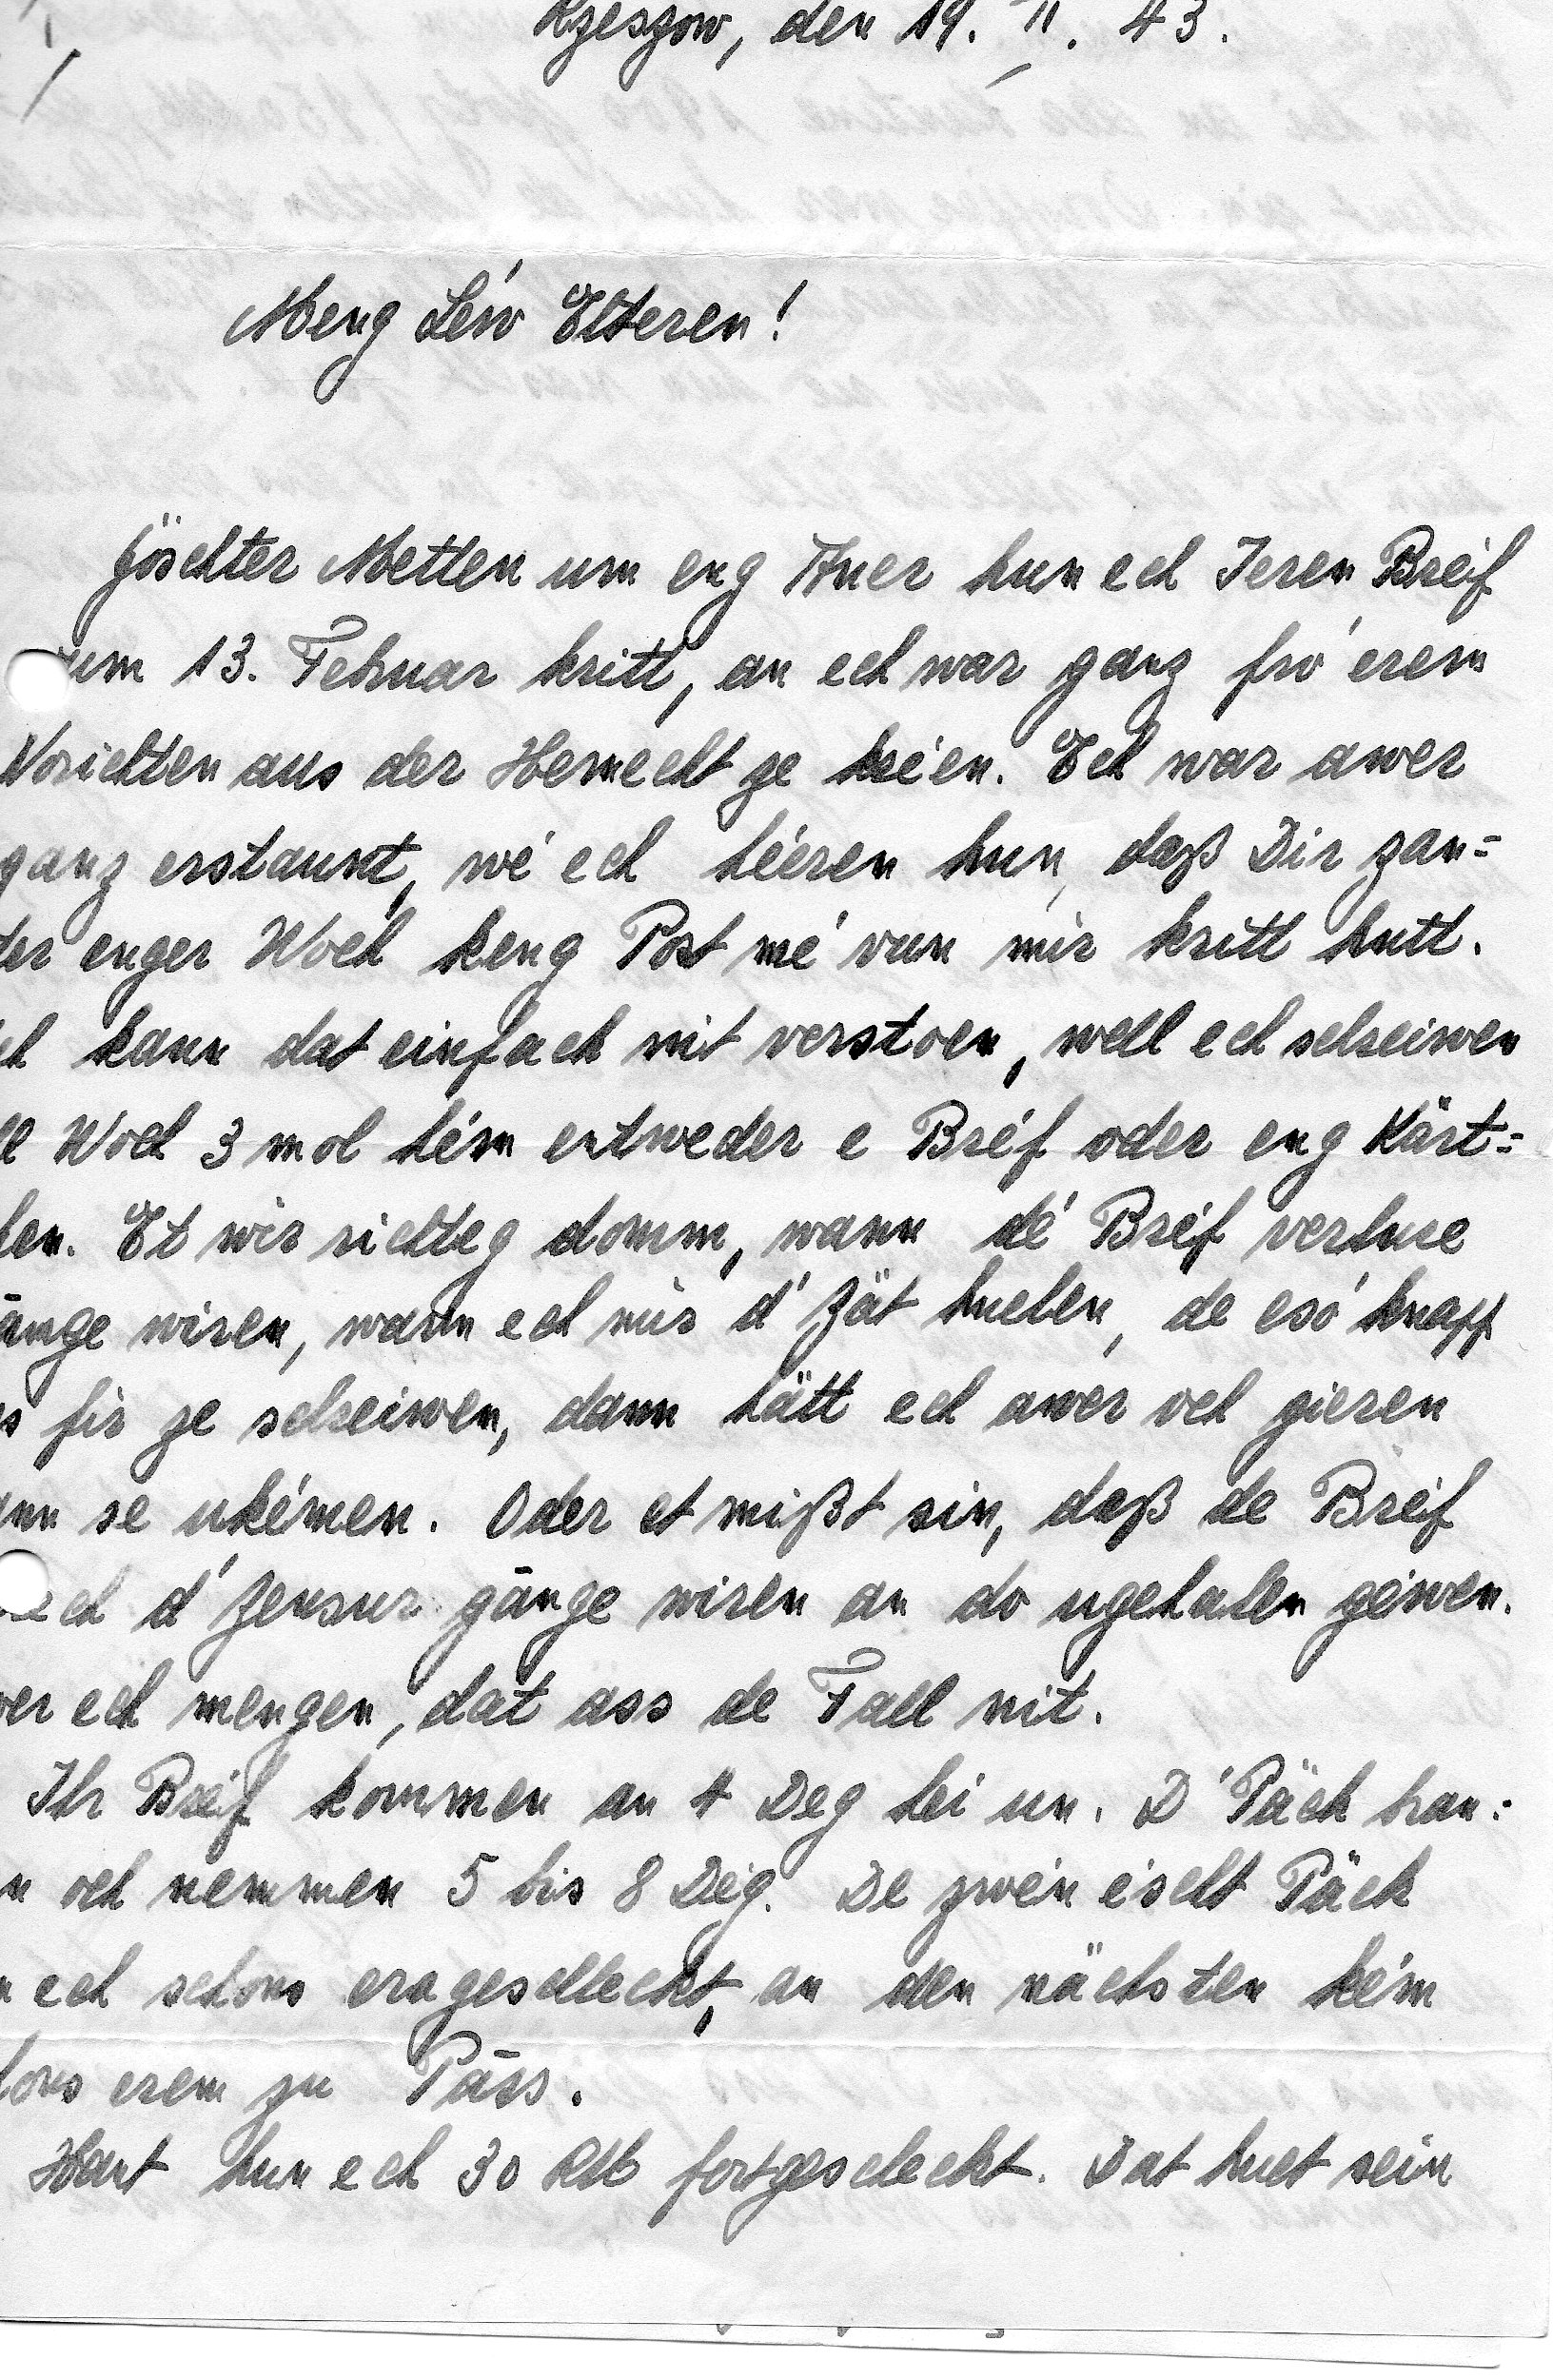 Rzeszow, den 19. II. 43.
Meng Léw Elteren!
Göschter Metten um eng Auer hun ech Ieren Bréif
vum 13. Februar kritt, an ech war ganz fro' erem
Norichten aus der Hemecht ze kréien. Ech war awer
ganz erstaunt, wé ech héieren hun, daß Dir zan=
der enger Woch keng Post mé vun mir kritt hutt.
ch kann dat einfach nit verstoen, well ech schreiwen
ll Woch 3 mol hém entweder e Bréf oder eng Kärt=
chen. Et wir richteg domm, wann dé Bréf verlure
gänge wiren, wann ech mir d' Zät huelen, de esó knapp
s fir ze schreiwen, dann hätt ech awer och gieren
ann se ukémen. Oder et mißt sin, daß de Bréif
rech d' Zensur gänge wiren an do ugehalen géiwen.
wer ech mengen, dat ass de Fall nit.
Ihr Bréif kommen an 4 Deg hei un. D' Päck brau=
n och nemmen 5 bis 8 Deg. De zwéin éischt Päck
n ech schons erageschleckt, an den nächsten kéim
hons erem zu Päss.
Haut hun ech 30 RM fortgescheckt. Dat huet sein